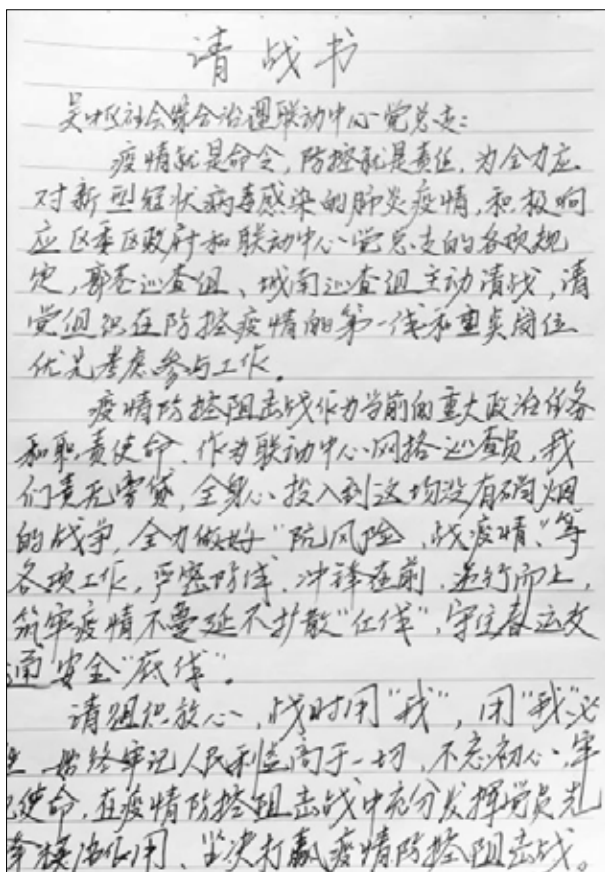 请战书
吴中区社会综合治理联动中心党总支:
疫情就是命令,防控就是责任,为全力应
对新型冠状病毒感染的肺炎疫情,积极响
应区委区政府和联动中心党总支的各项规
定,郭巷巡查组、城南巡查组主动请战,请
党组织在防控疫情的第一线和重点岗位
优先考虑参与工作。
疫情防控阻击战作为当前的重大政治任务
和职责使命,作为联动中心网格巡查员,我
们责无旁贷,全身心投入到这场没有硝烟
的战争,全力做好“防风险,战疫情”等
各项工作,严密防线,冲锋在前,逆行而上,
筑牢疫情不蔓延不扩散“红线”,守住春运交
通安全“底线”。
请组织放心,战时用“我”,用“我”必
胜,始终牢记人民利益高于一切,不忘初心、牢
记使命,在疫情防控阻击战中充分发挥党员先
锋模范作用,坚决打赢疫情防控阻击战。